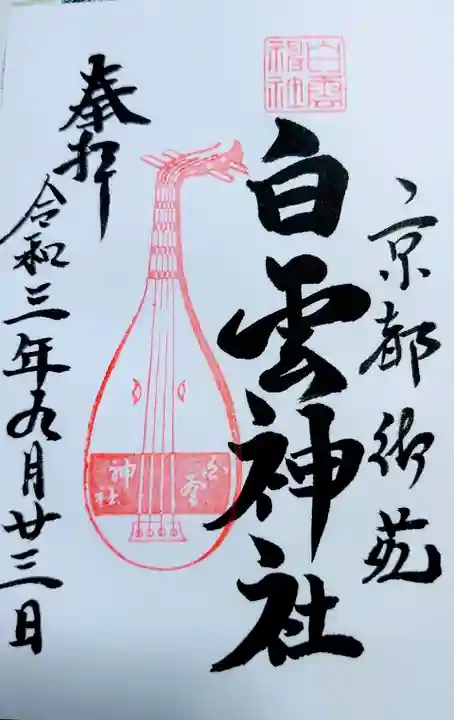 京都御苑
白雲神社
白雲神社
白雲
神社
奉拝
令和三年九月廿三日